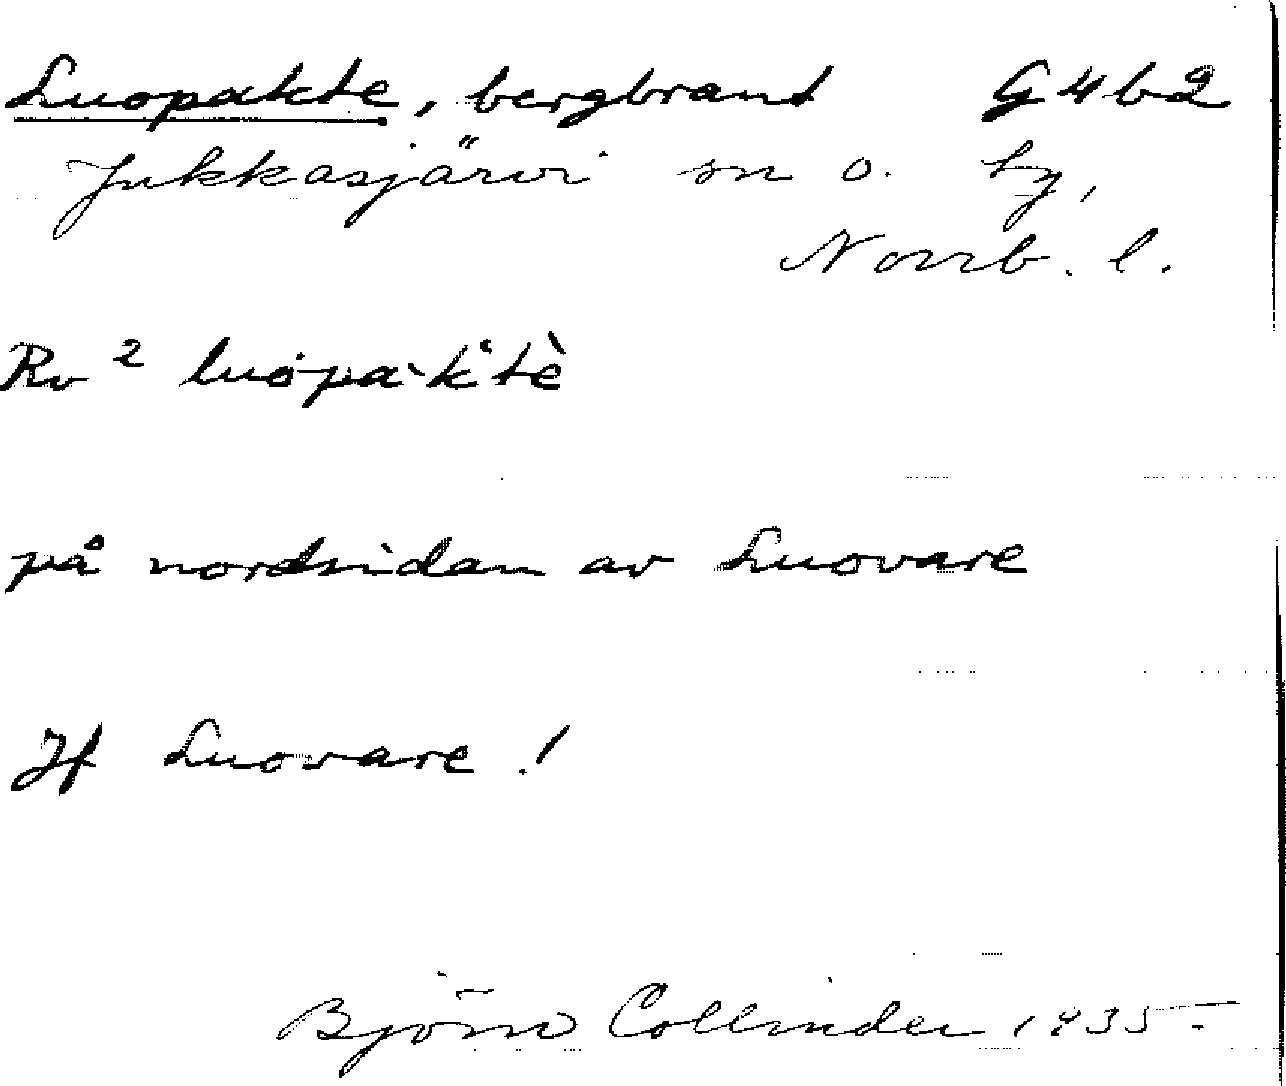 Luopakte, bergbrant G4b2
Jukkasjärvi sn o. by,
Norrb. l.
Rv 2 luȯpa·k‘tè
på nordsidan av Luovare
Jf Luovare!
Björn Collinder 1935